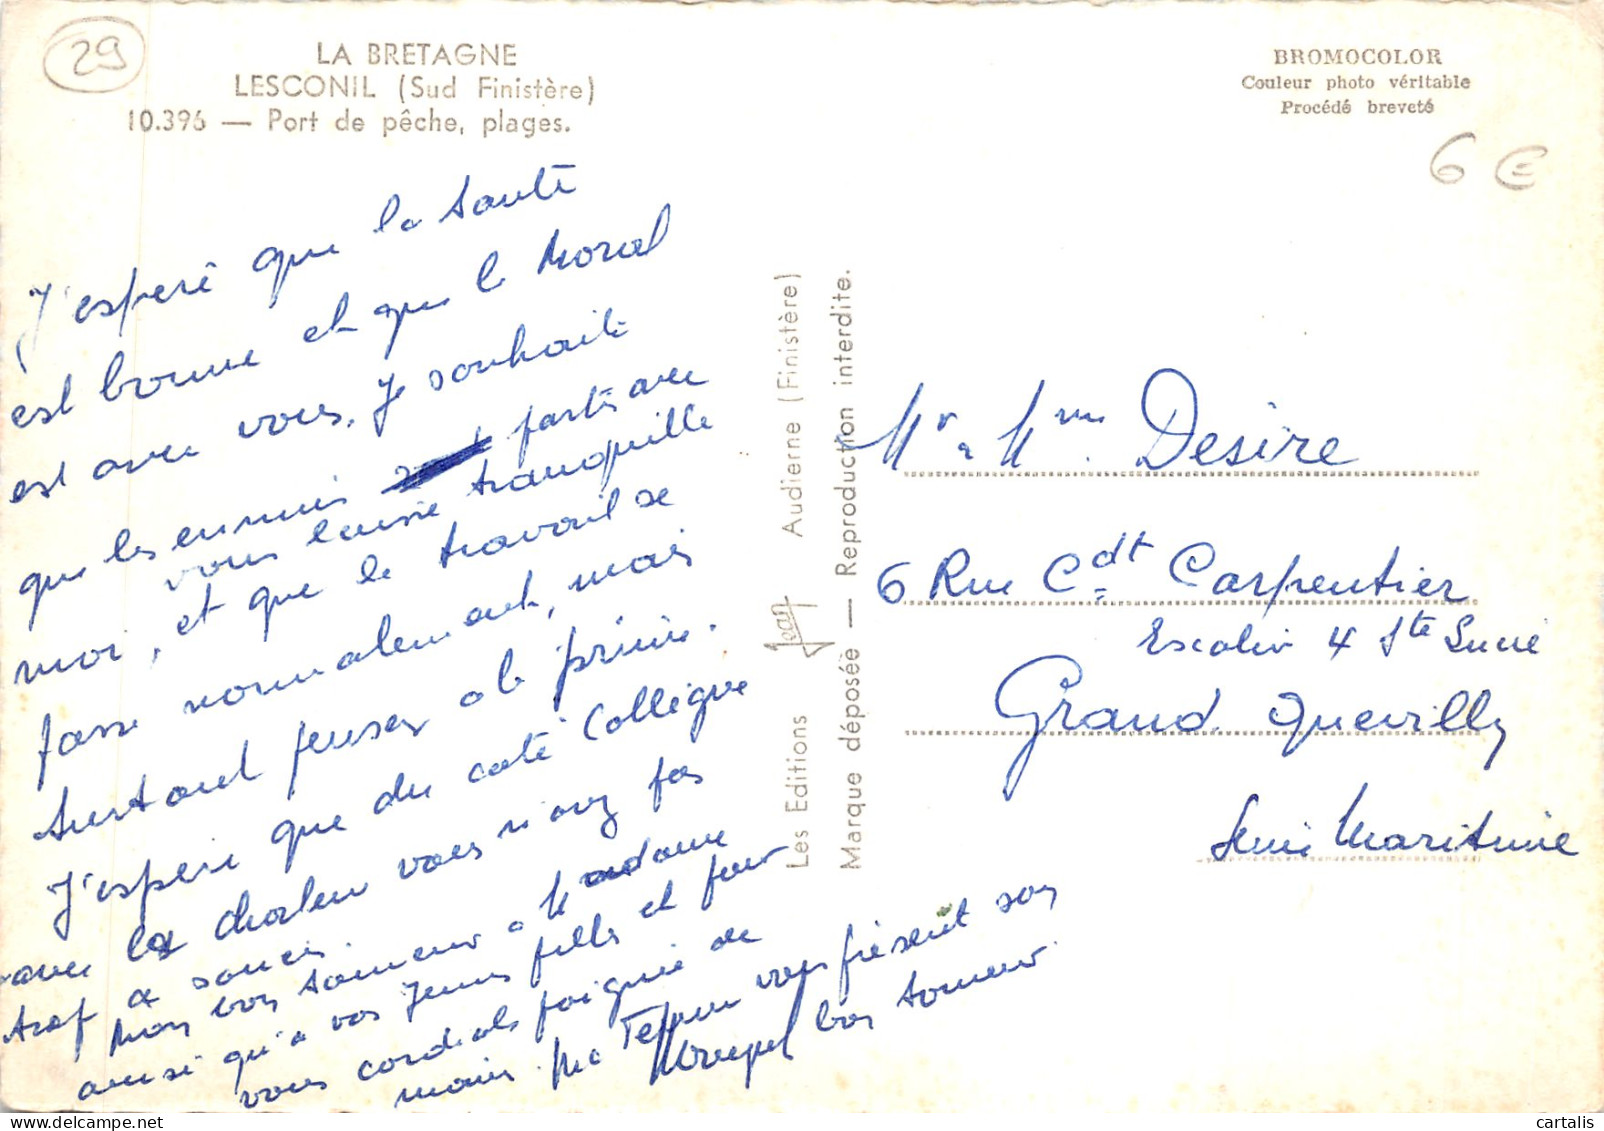 29
LA BRETAGNE
LESCONIL (Sud Finistère)
10.396 — Port de pêche, plages.
BROMOCOLOR
Couleur photo véritable
Procédé breveté
6 €
J'espere que la santé
est bonne et que le Moral
est avec vous, Je souhaite
que les ennuis partis avec
vous laisse tranquille
moi, et que le travail se
fasse normalement, mais
surtout pensez a la prime.
J'espere que du coté Collègue
avec la chaleur vous n'avez pas
trop de soucis
Mon bon souvenir a Madame
ainsi qu'a vos jeunes filles et pour
vous cordiale poignée de
main. Ma Femme vous présent son
bon souvenir.
Les Editions Jean Audierne (Finistère)
Marque déposée — Reproduction interdite.
Mr & Mme Desire
6 Rue Cdt Carpentier
Escalier 4 Ste Lucie
Grand Quevilly
Seine Maritime
delcampe.net
cartalis